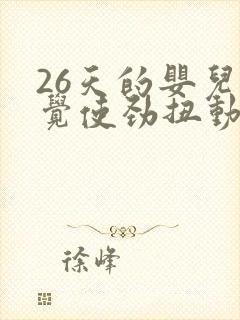 26天的嬰兒
覺使劲扭動
徐峰